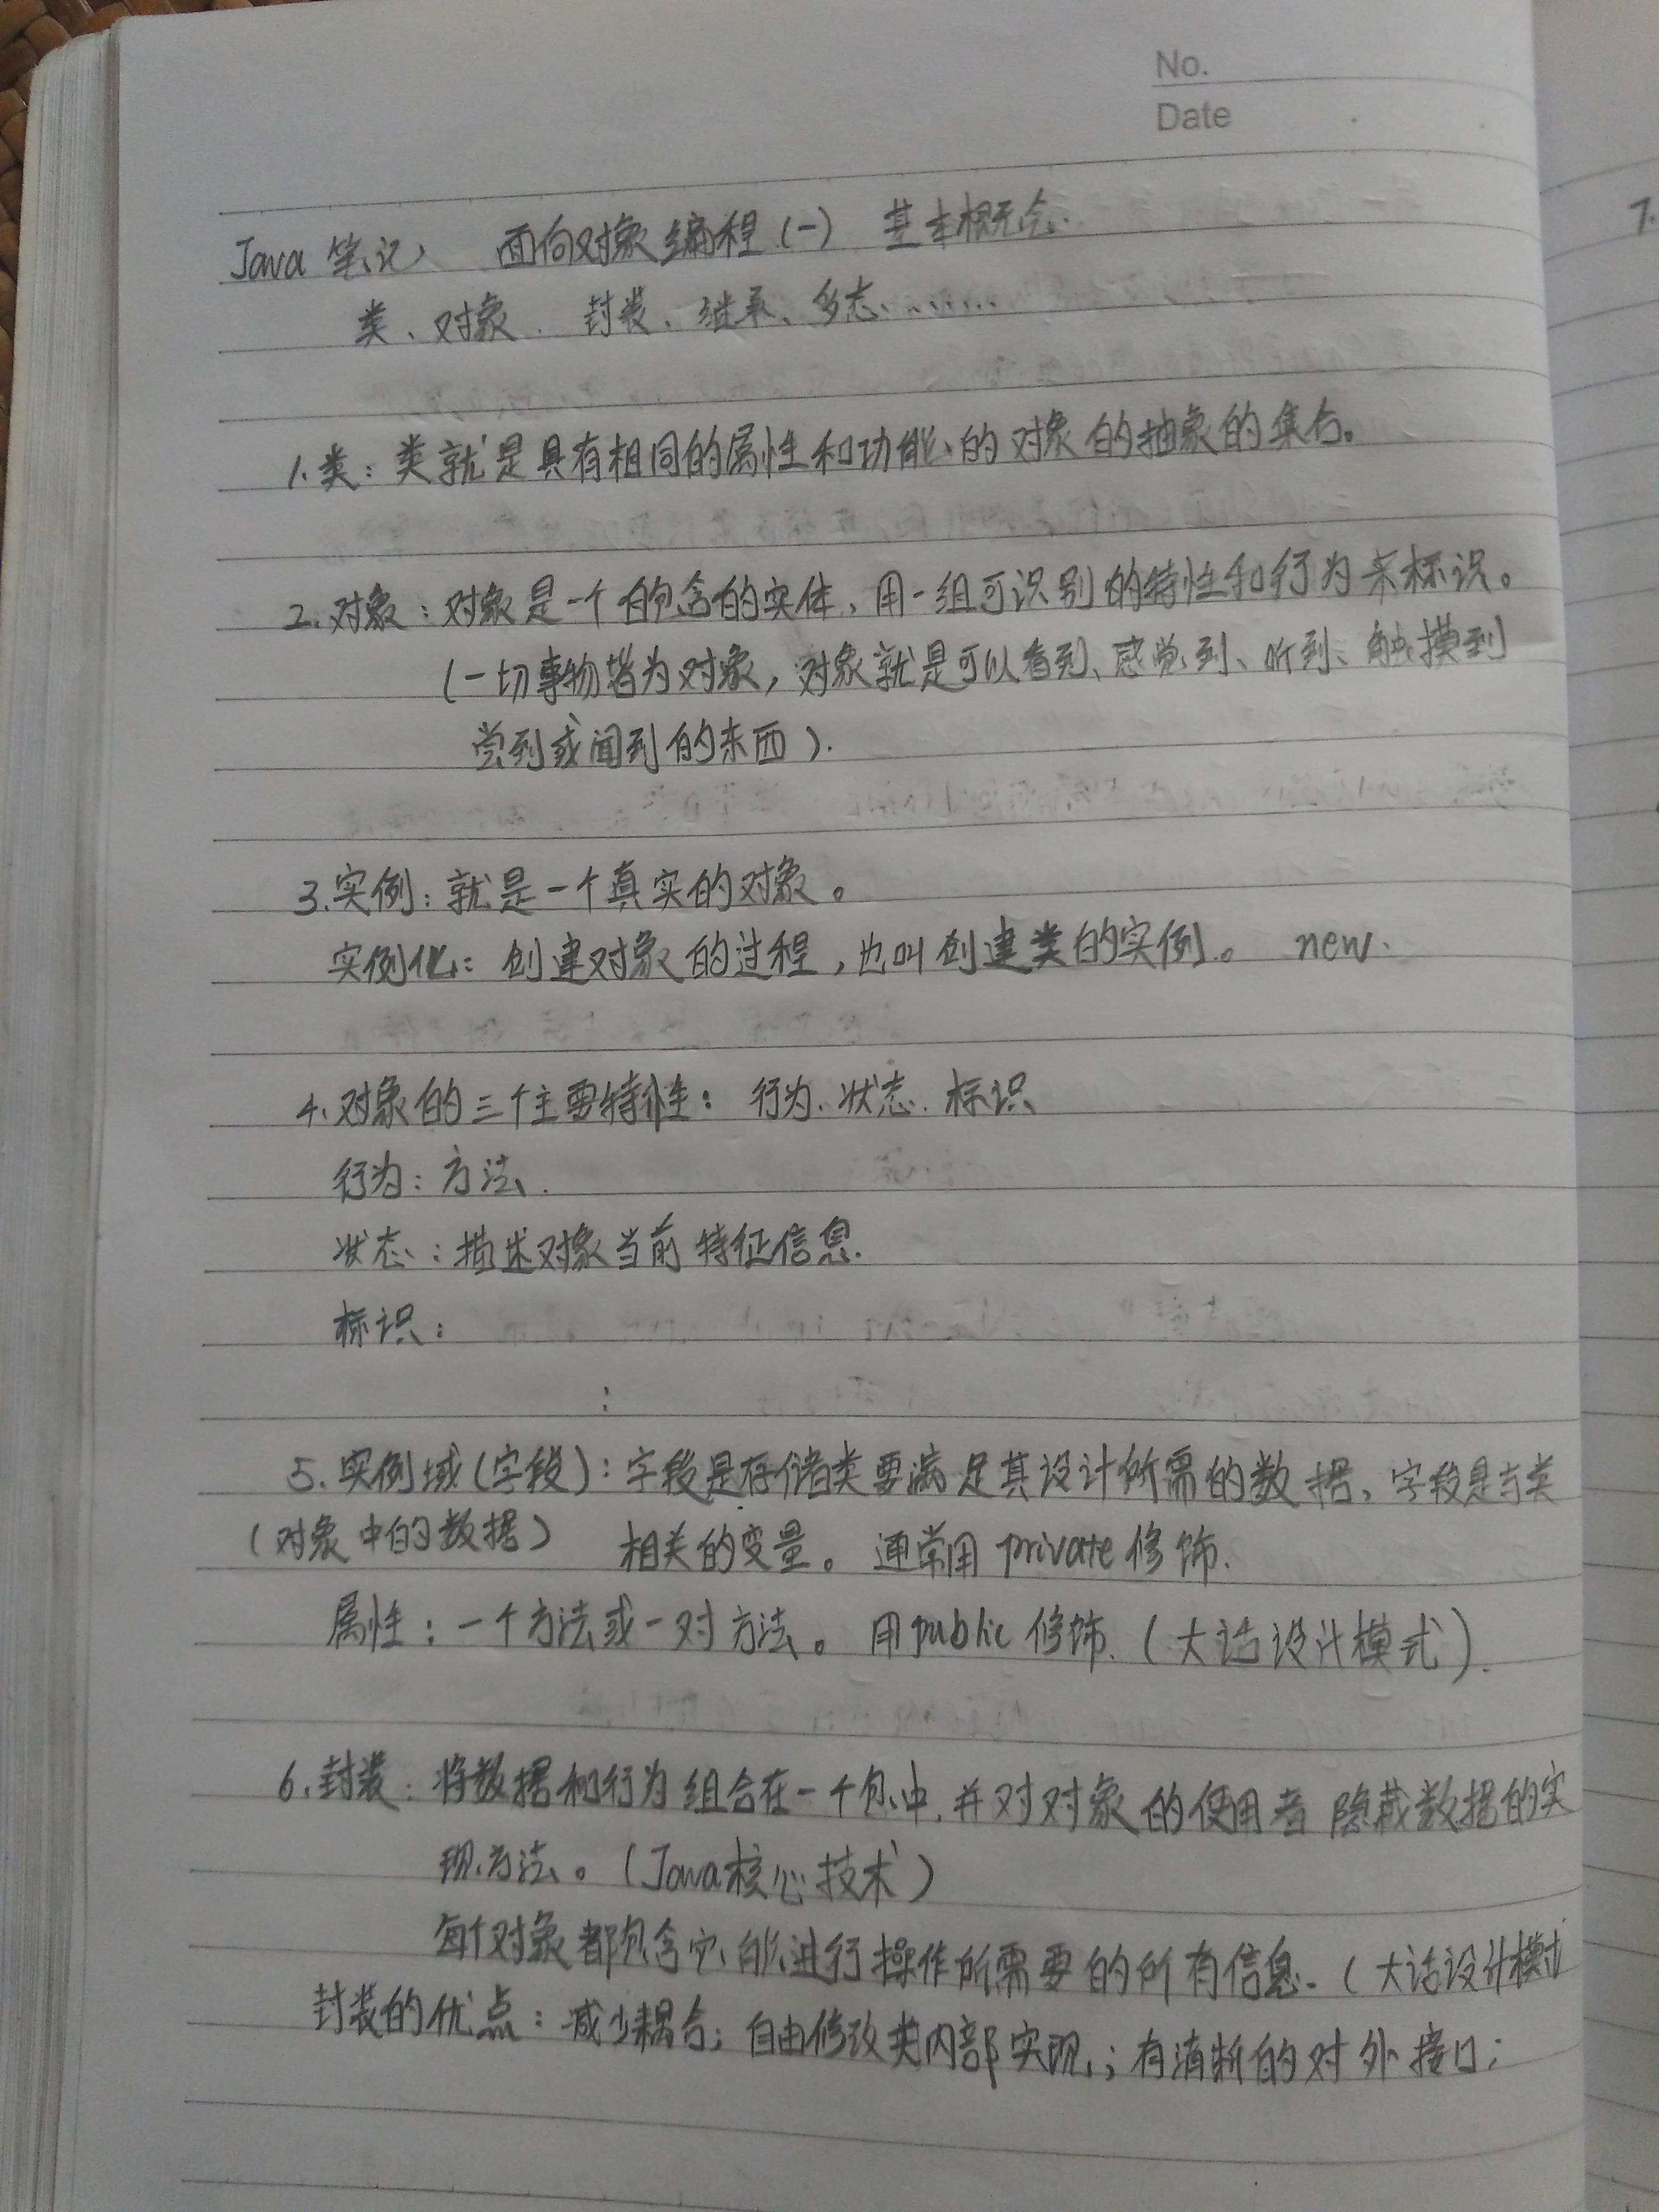 No.
Date
Java 笔记 面向对象编程(一) 基本概念.
类、对象. 封装、继承、多态、......
1.类:类就是具有相同的属性和功能的对象的抽象的集合。
2.对象:对象是一个自包含的实体、用一组可识别的特性和行为来标识。
(一切事物皆为对象,对象就是可以看到、感觉到、听到、触摸到
尝到或闻到的东西).
3.实例:就是一个真实的对象。
实例化:创建对象的过程,也叫创建类的实例。 new.
4.对象的三个主要特性: 行为、状态.标识
行为:方法.
状态:描述对象当前特征信息.
标识:
:
5.实例域(字段):字段是存储类要满足其设计所需的数据、字段是与类
(对象中的数据) 相关的变量。通常用 private 修饰.
属性:一个方法或一对方法。用public 修饰.(大话设计模式).
6.封装:将数据和行为组合在一个包中,并对对象的使用者隐藏数据的实
现方法。(Java核心技术)
每个对象都包含它能进行操作所需要的所有信息.(大话设计模式
封装的优点:减少耦合;自由修改类内部实现;有清晰的对外接口;
7.